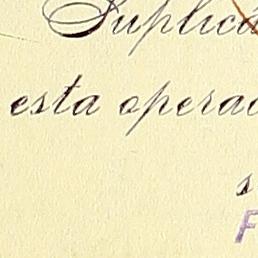 Suplica
esta opera
s
F